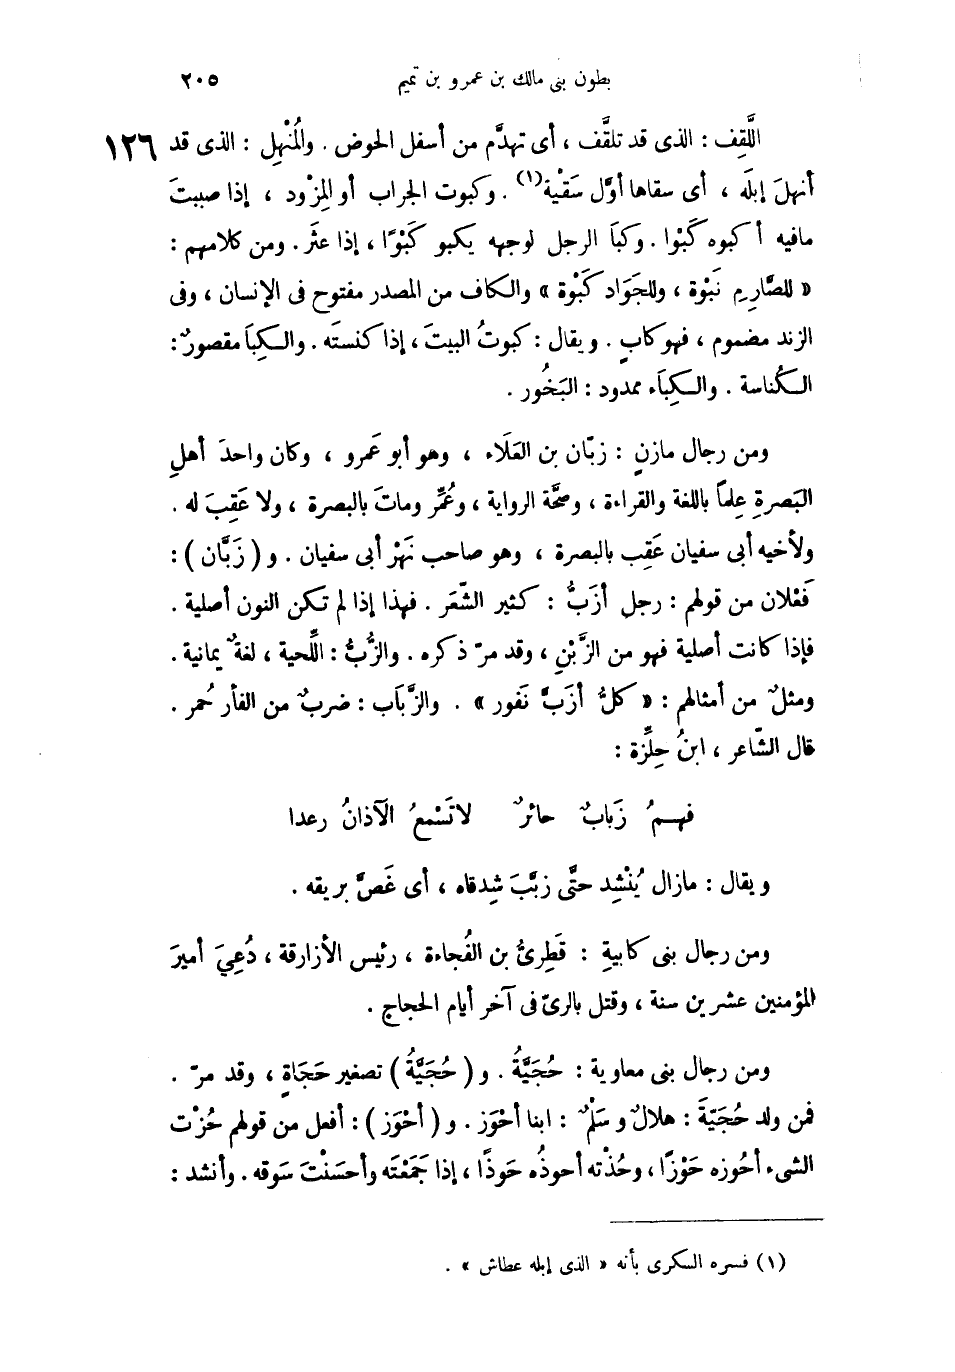 بطون بنى مالك بن عمرو بن تميم ٢٠٥
اللَّقِف : الذى قد تلقَّف ، أى تهدَّم من أسفل الحوض . والمُنْهِل : الذى قد ١٢٦
أنهلَ إبلَه ، أى سقاها أوَّل سَقْية(١) . وكبوت الجراب أو المِزْود ، إذا صببتَ
مافيه أكبوه كَبْوا . وكبَا الرجل لوجهه يكبو كَبْوًا ، إذا عثَر . ومن كلامهم :
« للصَّارِمِ نَبْوة ، وللجَوَاد كَبْوة » والكاف من المصدر مفتوح فى الإنسان ، وفى
الزند مضموم ، فهو كابٍ . ويقال : كبوتُ البيتَ ، إذا كنستَه . والكِبَا مقصورٌ :
الكُناسة . والكِبَاء ممدود : البَخُور .
ومن رجال مازنٍ : زبّان بن العَلَاء ، وهو أبو عَمرو ، وكان واحدَ أهلِ
البَصرةِ عِلماً باللغة والقراءة ، وصحَّة الرواية ، وعُمِّر وماتَ بالبصرة ، ولا عَقِبَ له .
ولأخيه أبى سفيان عَقِب بالبصرة ، وهو صاحب نَهْر أبى سفيان . و ( زَبَّان ) :
فَعْلان من قولهم : رجل أزَبُّ : كثير الشّعَر . فهذا إذا لم تكن النون أصلية .
فإذا كانت أصلية فهو من الزَّبْنِ ، وقد مرّ ذكره . والزُّبُّ : اللِّحية ، لغةٌ يمانية .
ومثلٌ من أمثالهم : « كلُّ أزَبَّ نَفور » . والزَّبَاب : ضربٌ من الفأر حُمر .
قال الشّاعر ، ابنُ حِلِّزة :
فهـمُ زَبابٌ حائرٌ لا تَسْمعُ الآذانُ رعدا
ويقال : مازال يُنْشِد حتَّى زبَّبَ شِدقاه ، أى غَصَّ بريقه .
ومن رجال بنى كابيةِ : قَطِرىُّ بن الفُجاءة ، رئيس الأزارقة ، دُعِيَ أميرَ
المؤمنين عشرين سنة ، وقتل بالرىّ فى آخر أيام الحجاج .
ومن رجال بنى معاوية : حُجَيَّةُ . و ( حُجَيَّةُ ) تصغير حَجَاةٍ ، وقد مرّ .
فمن ولد حُجَيّةَ : هلالٌ وسَلْمٌ : ابنا أحْوَز . و ( أحْوَز ) : أفعل من قولهم حُزْت
الشىء أحُوزه حَوْزًا ، وحُذْته أحوذُه حَوذًا ، إذا جَمَعْتَه وأحسَنْتَ سَوقه . وأنشد :
(١) فسره السكرى بأنه « الذى إبله عطاش » .